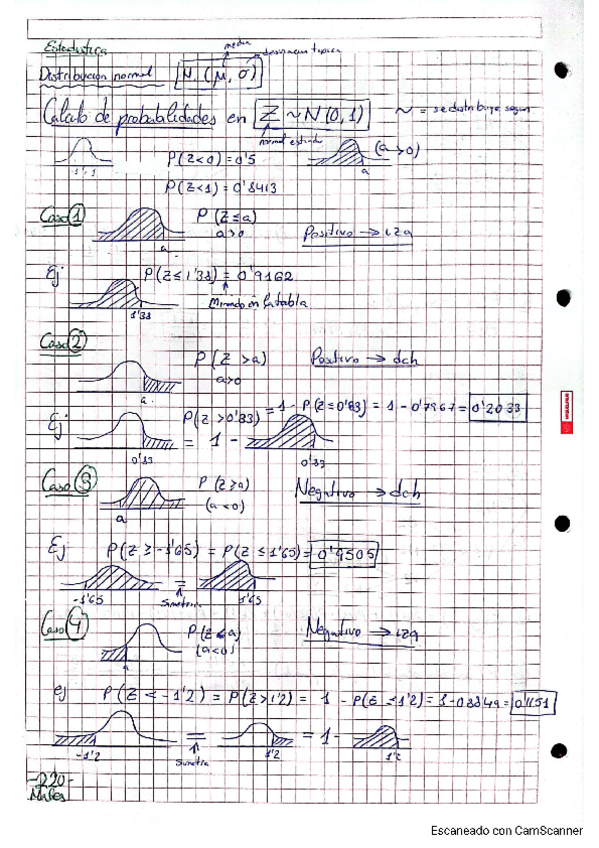 Estadística
media
desviación típica
Distribución normal N (μ, σ)
Cálculo de probabilidades en Z ~ N(0,1)
~ = se distribuye según
normal estándar
P(Z<0) = 0'5
(a>0)
-1 1
a
P(Z<1) = 0'8413
Caso 1
P(Z≤a)
a>0
Positivo → izq
a
Ej
P(Z≤1'38) = 0'9162
1'38
Mirando en la tabla
Caso 2
P(Z>a)
a>0
Positivo → dch
a
Ej
P(Z>0'83) = 1 - P(Z≤0'83) = 1 - 0'7967 = 0'2033
= 1 -
0'83
0'83
Caso 3
P(Z≥a)
(a<0)
Negativo → dch
a
Ej
P(Z≥-1'65) = P(Z≤1'65) = 0'9505
=
-1'65
Simetría
1'65
Caso 4
P(Z≤a)
(a<0)
Negativo → izq
a
ej
P(Z<-1'2) = P(Z>1'2) = 1 - P(Z≤1'2) = 1-0'8849 = 0'1151
= = 1 -
-1'2
Simetría
1'2
1'2
-220-
Escaneado con CamScanner